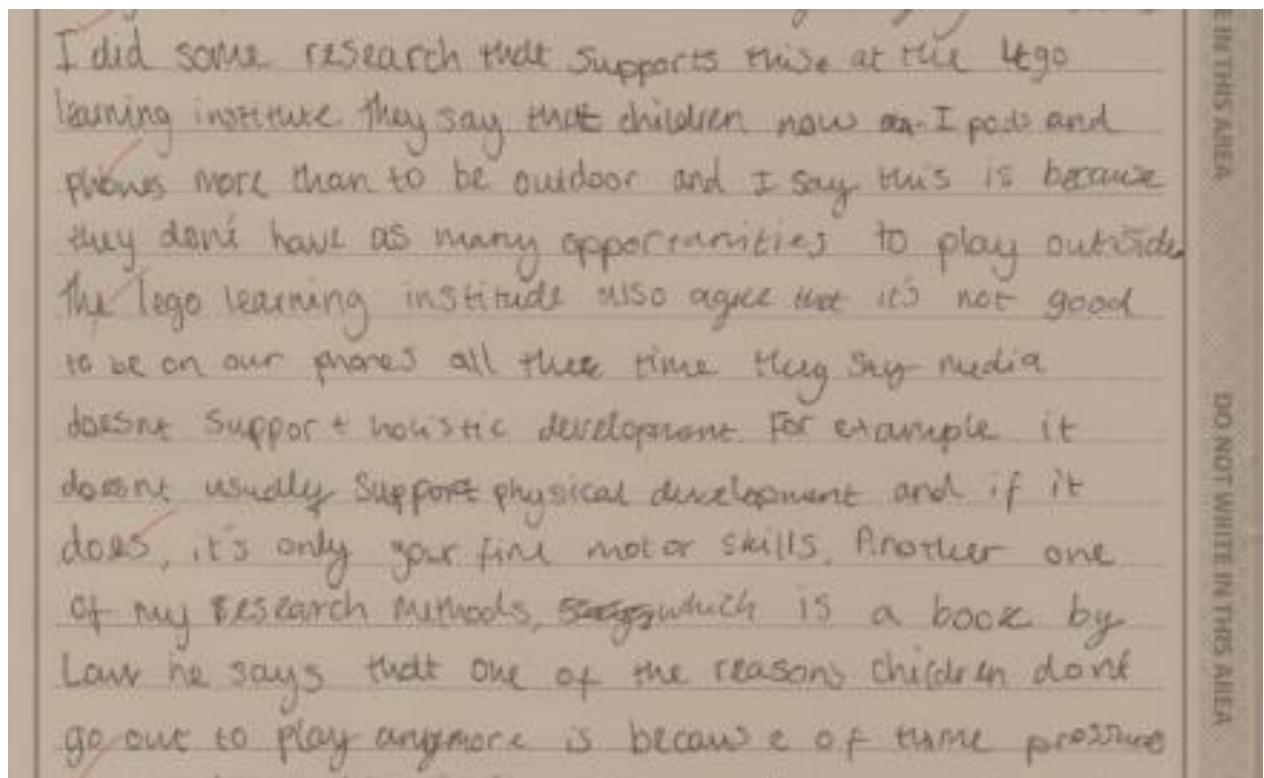 I did some research that supports thise at the lego
learning institute they say that children now on I pods and
phones more than to be outdoor and I say this is because
they dont have as many opportunities to play outside
The lego learning institude also agree that it's not good
to be on our phones all thee time they say media
doesnt support holistic development. For example it
doesnt usually support physical development and if it
does, it's only your fine motor skills. Another one
of my research methods, which is a book by
he says that one of the reasons children dont
go out to play anymore is because of time pressure
E IN THIS AREA
DO NOT WRITE IN THIS AREA